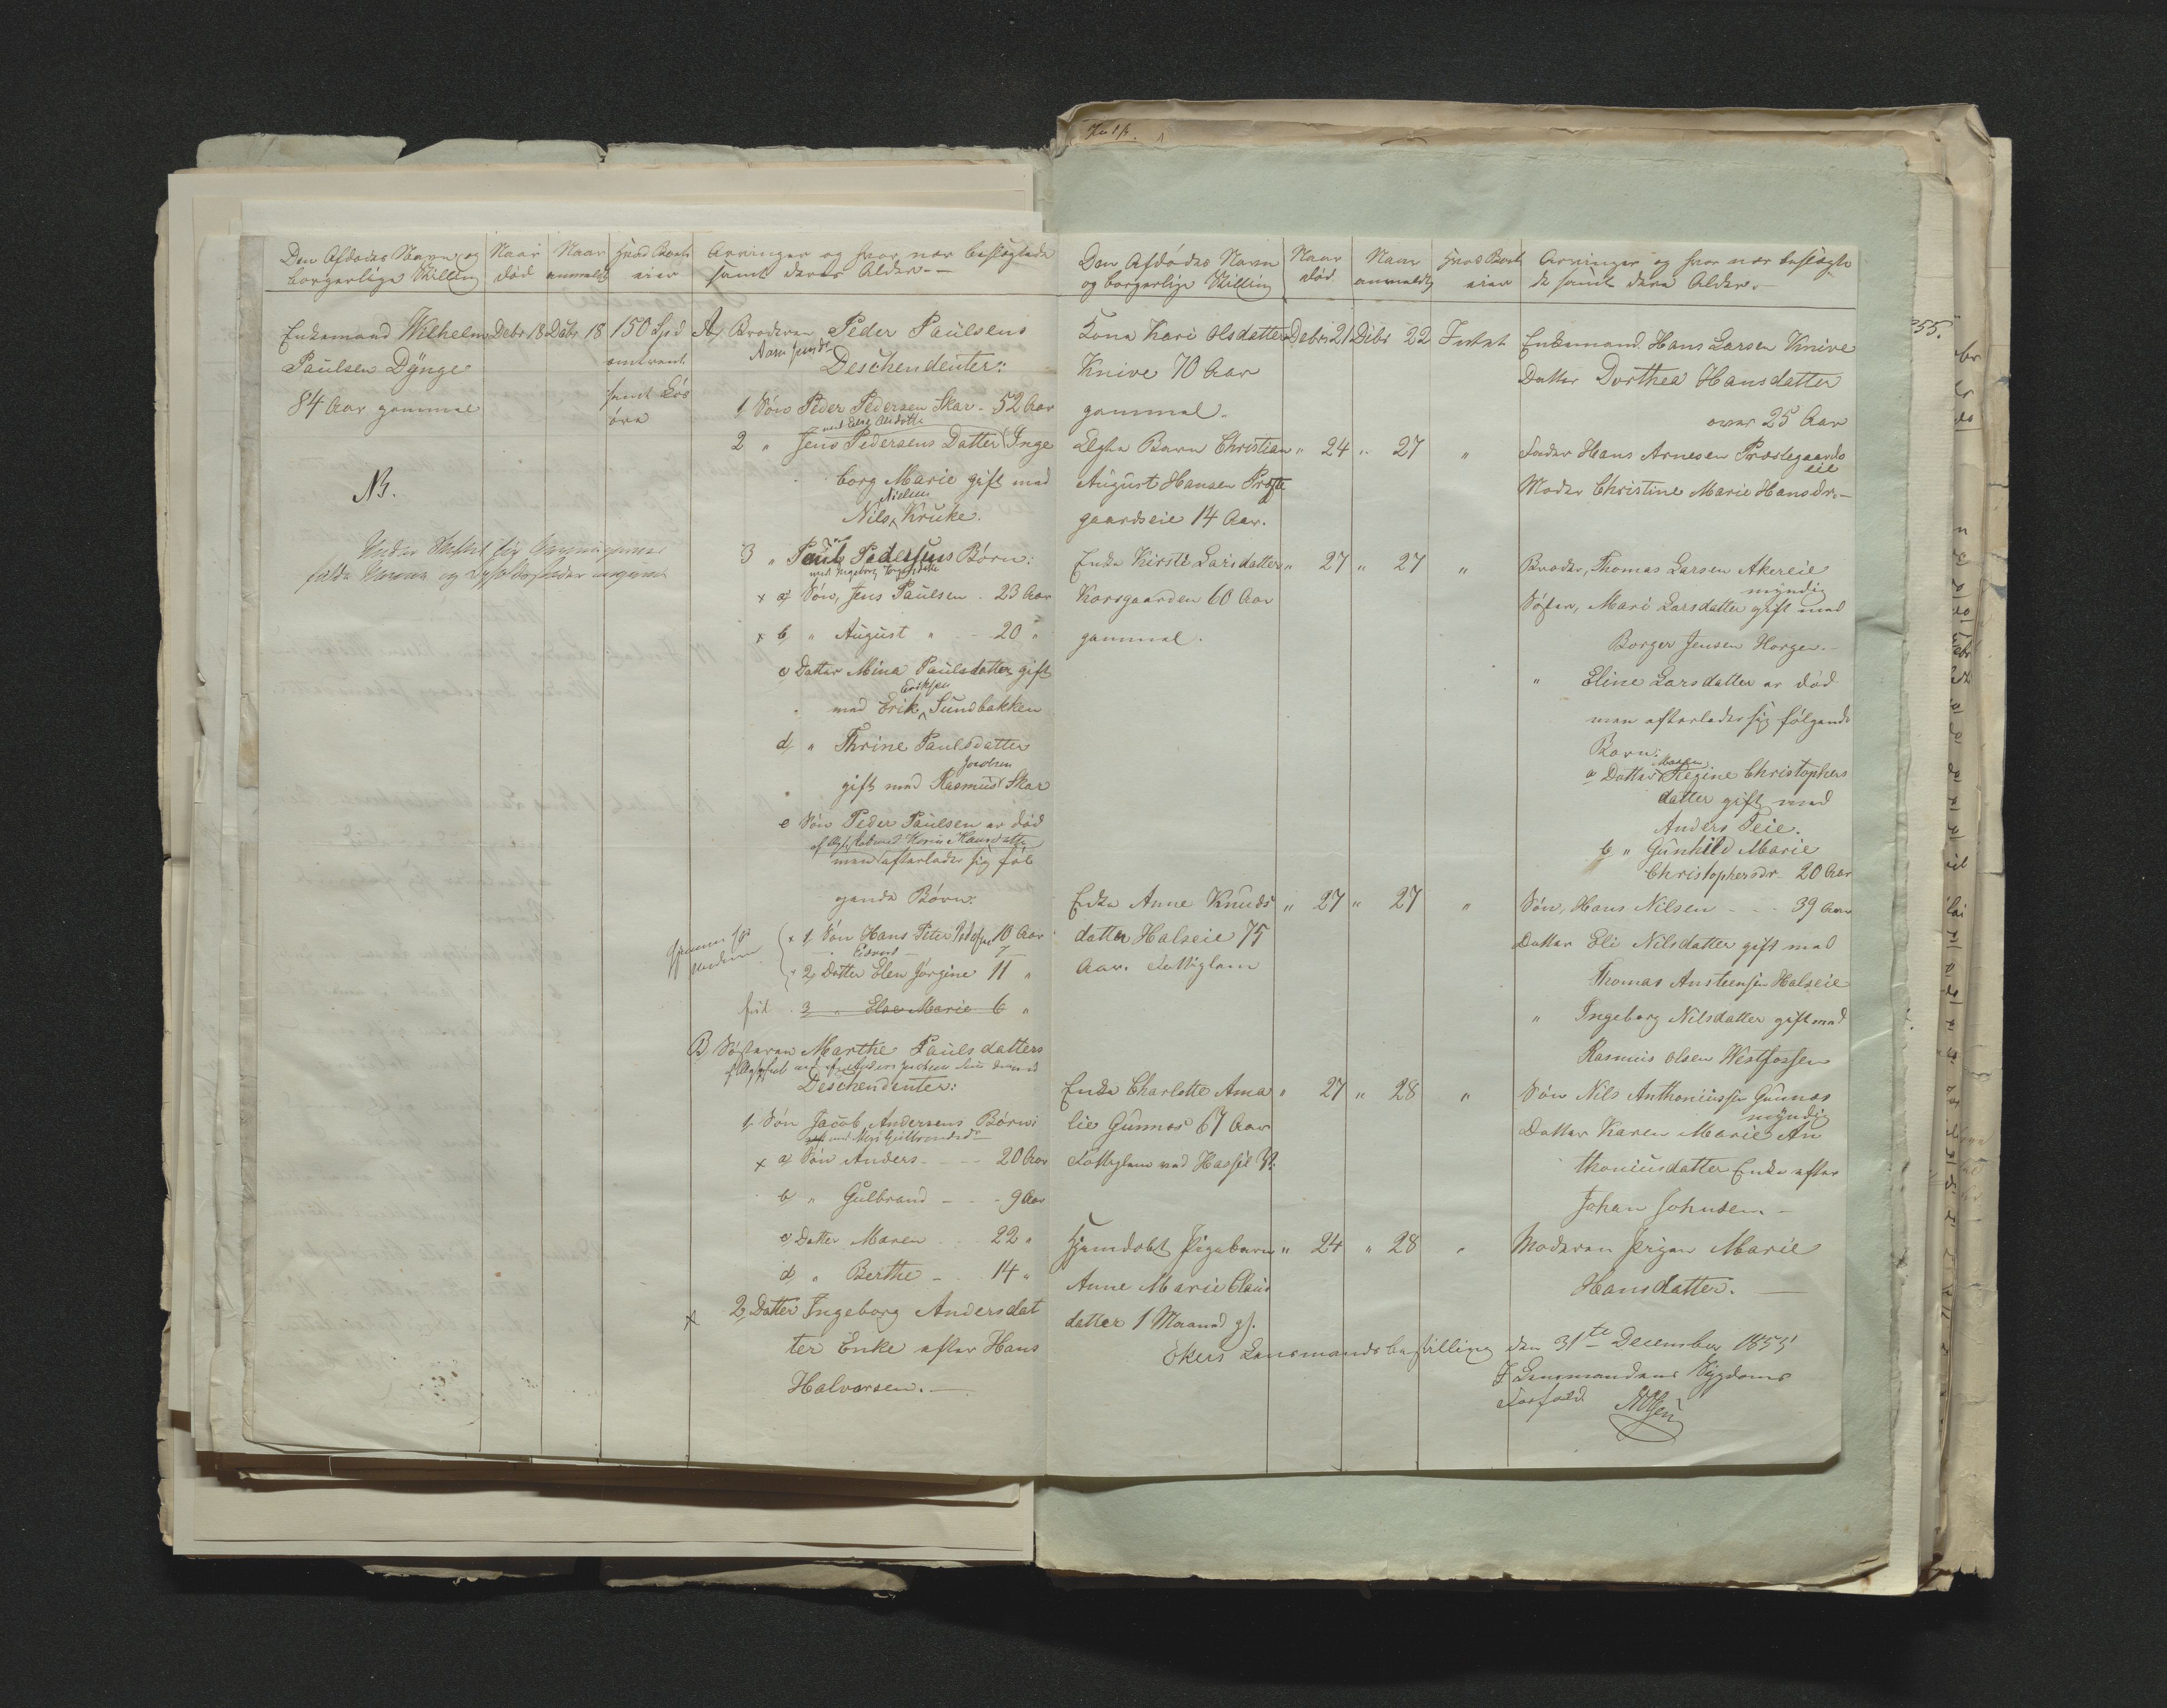 Den Afdødes Navn og
borgerlige Stilling
Naar
død
Naar
anmeldt
Hvad Boet
eier
Arvinger og hvor nær beslægtede
samt deres Alder.—
Enkemand Wilhelm
Paulsen Dynge
84 Aar gammel
Debr 18
Debr 18
150 Spd
omtrent
samt Løs
øre
NB.
A, Broderen Peder Paulsens
Deschendenter:
1 Søn Peder Pedersen Skar - 52 Aar
2 " Jens Pedersens Datter Inge
borg Marie gift med
Nielsen
Nils Kruke.
3 " Paul Pedersens Børn:
med Ingeborg
x a, Søn, Jens Paulsen . 23 Aar
x b, " August " - 20 "
c Datter Mina Paulsdatter gift
Eriksen
med Erik Sundbakken
d, " Thrine Paulsdatter
Jacobsen
gift med Rasmus Skar
e Søn Peder Paulsen er død
men efterlader sig føl
gende Børn:
x 1, Søn Hans Peter Pedersen 10 Aar
Edvard - 7
x 2, Datter Elen Jørgine 11 "
død 3 " Else Marie 6 "
B, Søsteren Marthe Paulsdatters
Deschendenter:
1, Søn Jacob Andersens Børn:
x a, Søn Anders - - - 20 Aar
b " Gulbrand - - - 9 Aar
c, Datter Maren . . . 22 "
d, " Berthe - . 14 "
x 2, Datter Ingeborg Andersdat
ter Enke efter Hans
Halvorsen.—
Den Afdødes Navn
og borgerlige Stilling
Naar
død
Naar
anmeldt
Hvad Boet
eier
Arvinger og hvor nær beslægte
de samt dere Alder.—
Kone Kari Olsdatter
Knive 70 Aar
gammel.
Debr 21
Debr 22
Intet
Enkemand Hans Larsen Knive
Datter Dorthea Hansdatter
over 25 Aar
Ægte Barn Christian
August Hansen Præste
gaardseie 14 Aar.
" 24 " 27 "
Fader Hans Arnesen Præstegaards
eie
Moder Christine Marie Hansdr.—
Enke Kirsti Larsdatter
Korsgaarden 60 Aar
gammel.
" 27 " 27 "
Broder, Thomas Larsen Akereie
myndig
Søster, Mari Larsdatter gift med
Borger Jensen Horgen.—
" Eline Larsdatter er død
men efterlader sig følgende
Børn:
Maren
a Datter Regine Christophers
datter gift med
Anders Teie.
b " Gunhild Marie
Christophersdr. 20 Aar
Enke Anne Knuds
datter Halseie 75
Aar. Fattiglem
" 27 " 27 "
Søn, Hans Nilsen - - . 39 Aar
Datter Eli Nilsdatter gift med
Thomas Anstensen Halseie
" Ingeborg Nilsdatter gift med
Rasmus Olsen Westfossen
Enke Charlotte Ama
lie Gunnas 67 Aar
Fattiglem ved Hassel V.
" 27 " 28 "
Søn Nils Anthoniussen Gunnas
myndig
Datter Karen Marie An
thoniusdatter Enke efter
Johan Johnsen.—
Hjemdøbt Pigebarn
Anne Marie Claus
datter 1 Maaned gl.
" 24 " 28 "
Moderen Pigen Marie
Hansdatter.—
Økers Lensmandsbestilling den 31te December 1855
I Lensmandens Sygdoms
Forfald
55.